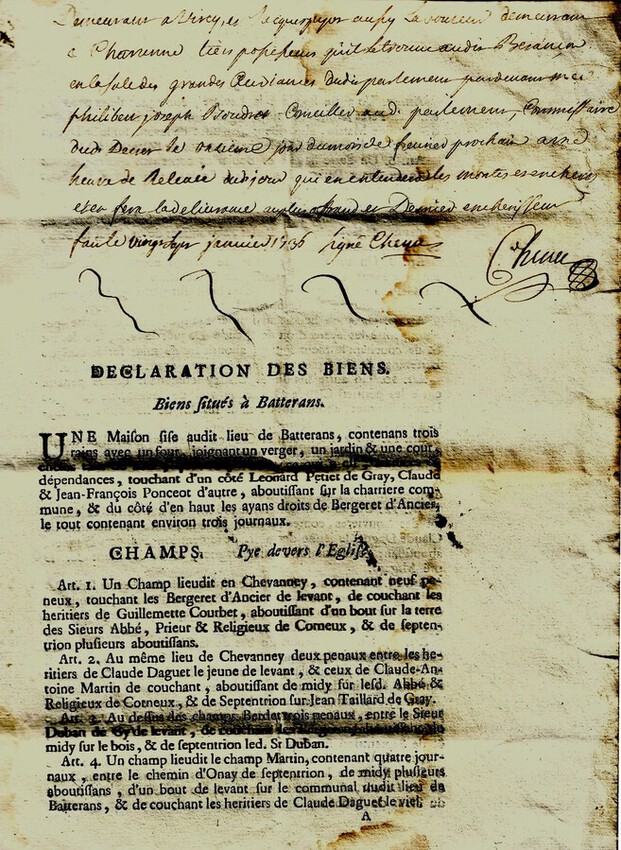 Demeurant a
demeurant
a Charenne tiers possesseurs
en la sale des grandes Audiances dudit parlement pardevant
philibert joseph Conseiller aud. parlement, Commissaire
dud. Decret le onzieme jour du mois de fevrier prochain
heure de Relevée dud jour qui en entendra les montes
et en fera la delivrance au plus offrant et Dernier encherisseur
fait le vingt janvier 1736 signé
DECLARATION DES BIENS.
Biens situés à Batterans.
UNE Maison sise audit lieu de Batterans, contenans trois
rains avec un four, joignant un verger, un jardin & une cour,
dépendances, touchant d'un côté Leonard Petiet de Gray, Claude
& Jean-François Ponceot d'autre, aboutissant sur la charriere com-
mune, & du côté d'en haut les ayans droits de Bergeret d'Ancier,
le tout contenant environ trois journaux.
CHAMPS. Pye devers l'Eglise.
Art. 1. Un Champ lieudit en Chevanney, contenant neuf pe-
neux, touchant les Bergeret d'Ancier de levant, de couchant les
heritiers de Guillemette Courbet, aboutissant d'un bout sur la terre
des Sieurs Abbé, Prieur & Religieux de Corneux, & de septen-
trion plusieurs aboutissans.
Art. 2. Au même lieu de Chevanney deux penaux entre les he-
ritiers de Claude Daguet le jeune de levant, & ceux de Claude-An-
toine Martin de couchant, aboutissant de midy sur lesd. Abbé &
Religieux de Corneux, & de Septentrion sur Jean Taillard de Gray.
Art. 3. Au dessus des champs trois penaux, entre le Sieur
Duban de Gy de levant, de couchant
midy sur le bois, & de septentrion led. Sr Duban.
Art. 4. Un champ lieudit le champ Martin, contenant quatre jour-
naux, entre le chemin d'Onay de septentrion, de midy plusieurs
aboutissans, d'un bout de levant sur le communal audit lieu de
Batterans, & de couchant les heritiers de Claude Daguet le vieil
A